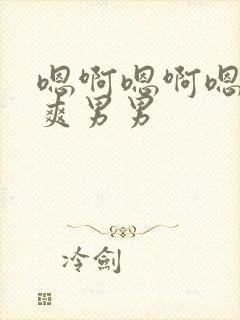 嗯啊嗯啊嗯
爽男男
冷劍